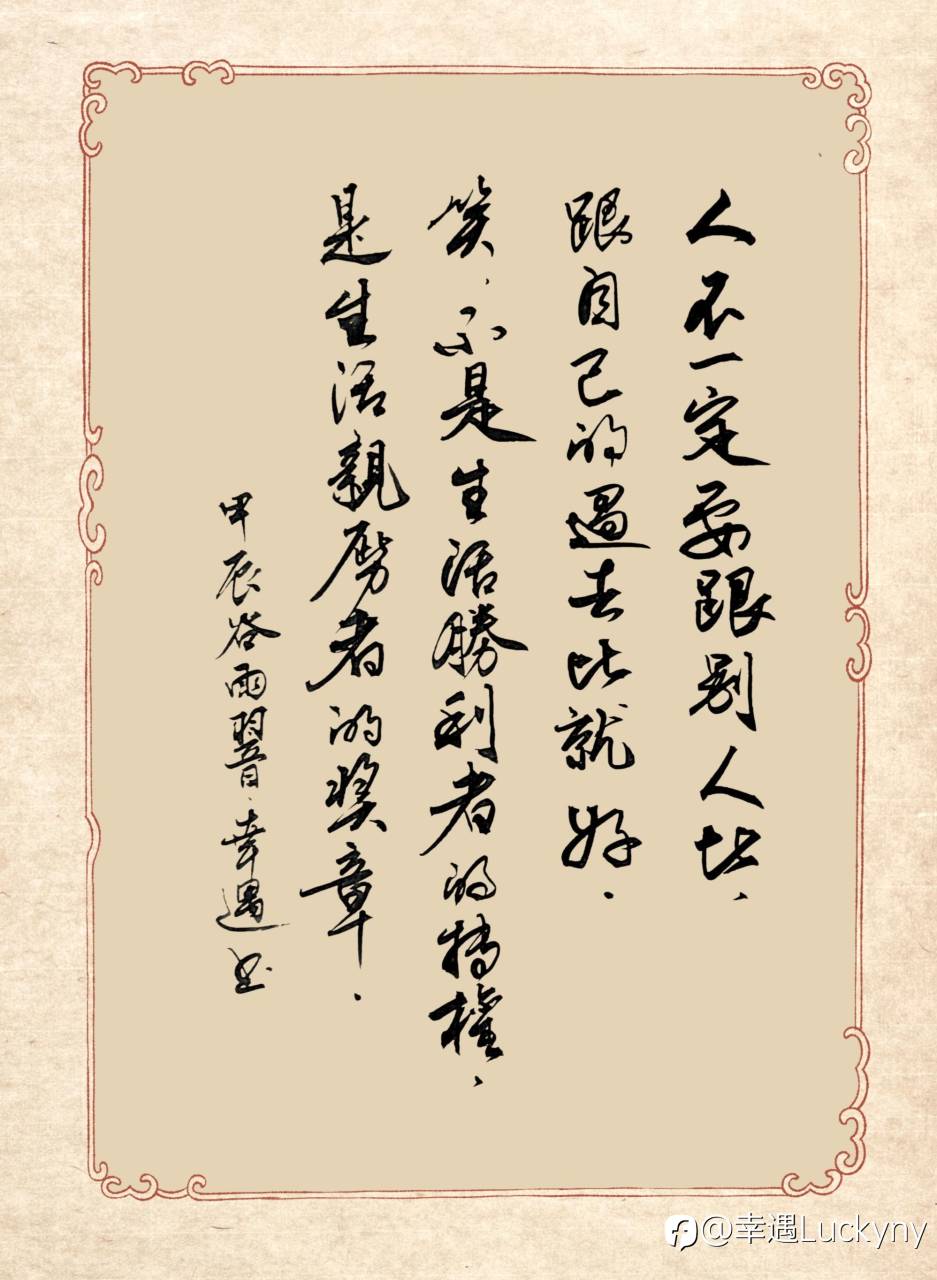 人不一定要跟别人比，
跟自己的過去比就好．
笑，不是生活勝利者的特權，
是生活親历者的奖章．
甲辰谷雨翌日．幸遇书
@幸遇Luckyny